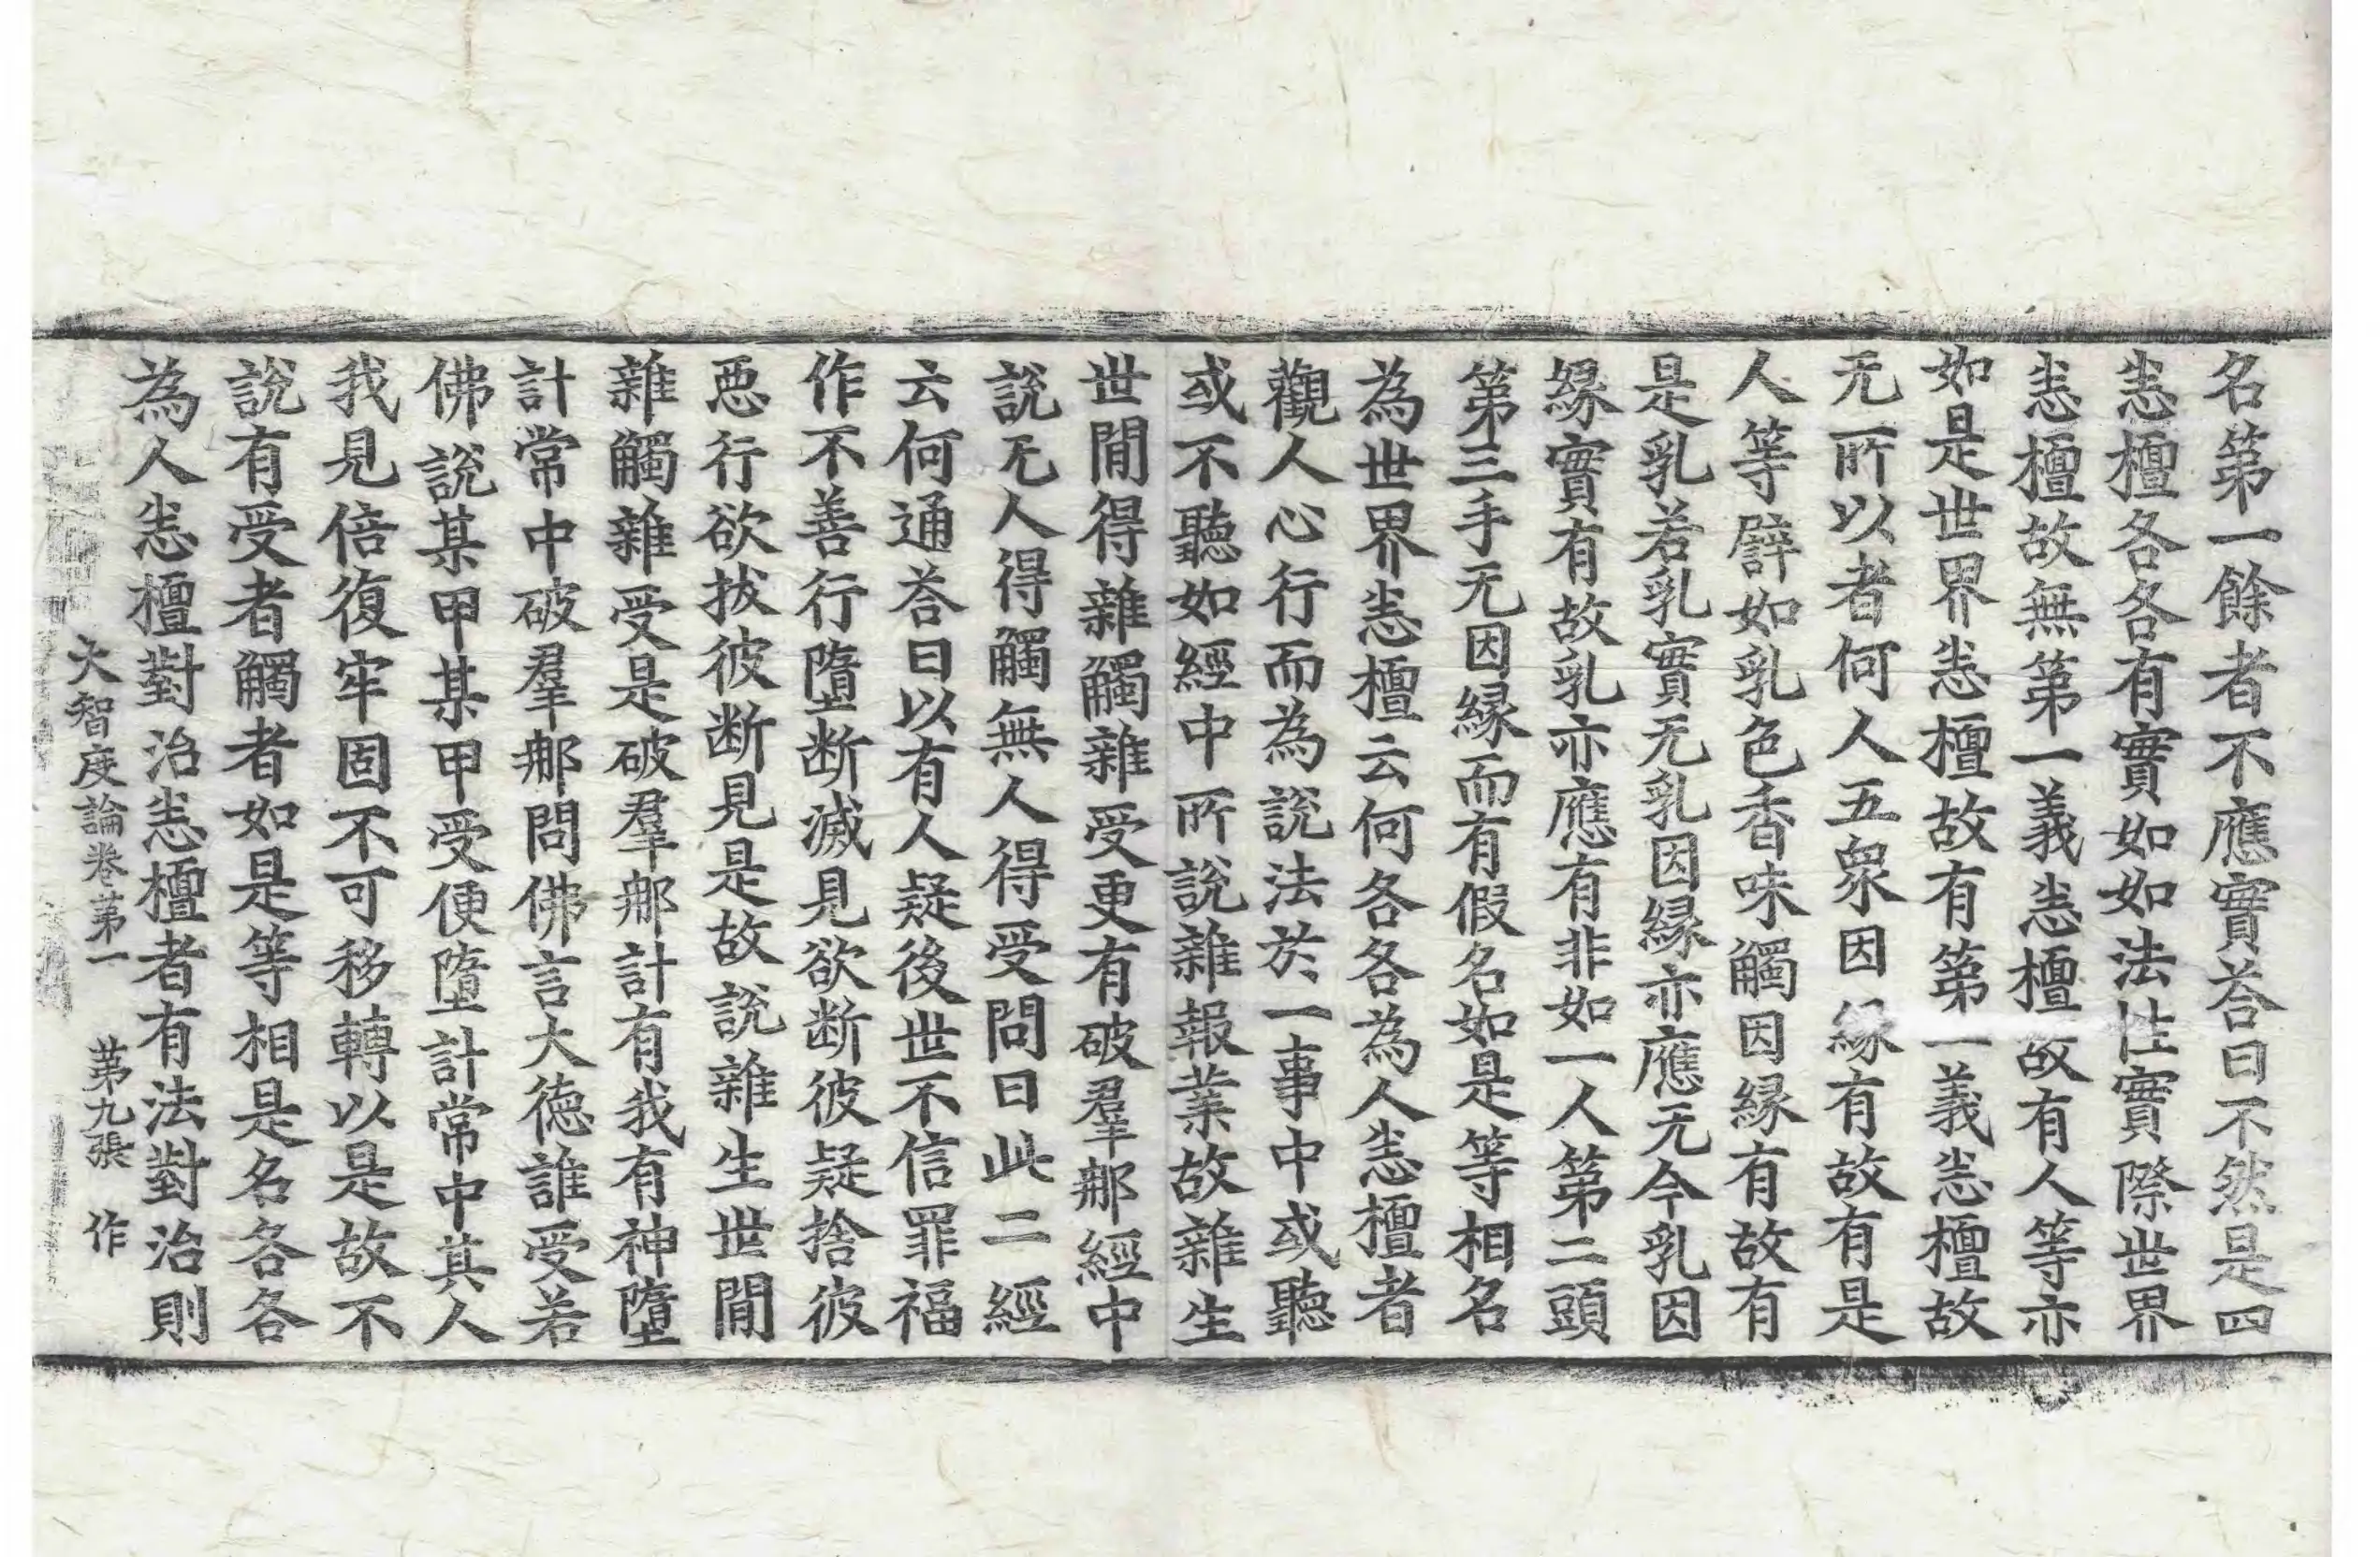 名第一餘者不應實荅曰不然是四
悉檀各各有實如如法性實際世界
悉檀故無第一義悉檀故有人等亦
如是世界悉檀故有第一義悉檀故
无所以者何人五衆因緣有故有是
人等譬如乳色香味觸因緣有故有
是乳若乳實无乳因緣亦應无今乳因
緣實有故乳亦應有非如一人第二頭
第三手无因緣而有假名如是等相名
為世界悉檀云何各各為人悉檀者
觀人心行而為說法於一事中或聽
或不聽如經中所說雜報業故雜生
世閒得雜觸雜受更有破羣那經中
說无人得觸無人得受問曰此二經
云何通荅曰以有人疑後世不信罪福
作不善行墮断滅見欲断彼疑捨彼
惡行欲拔彼断見是故說雜生世閒
雜觸雜受是破羣那計有我有神墮
計常中破羣那問佛言大德誰受若
佛說某甲某甲受便墮計常中其人
我見倍復牢固不可移轉以是故不
說有受者觸者如是等相是名各各
為人悉檀對治悉檀者有法對治則
大智度論卷第一 第九張 作